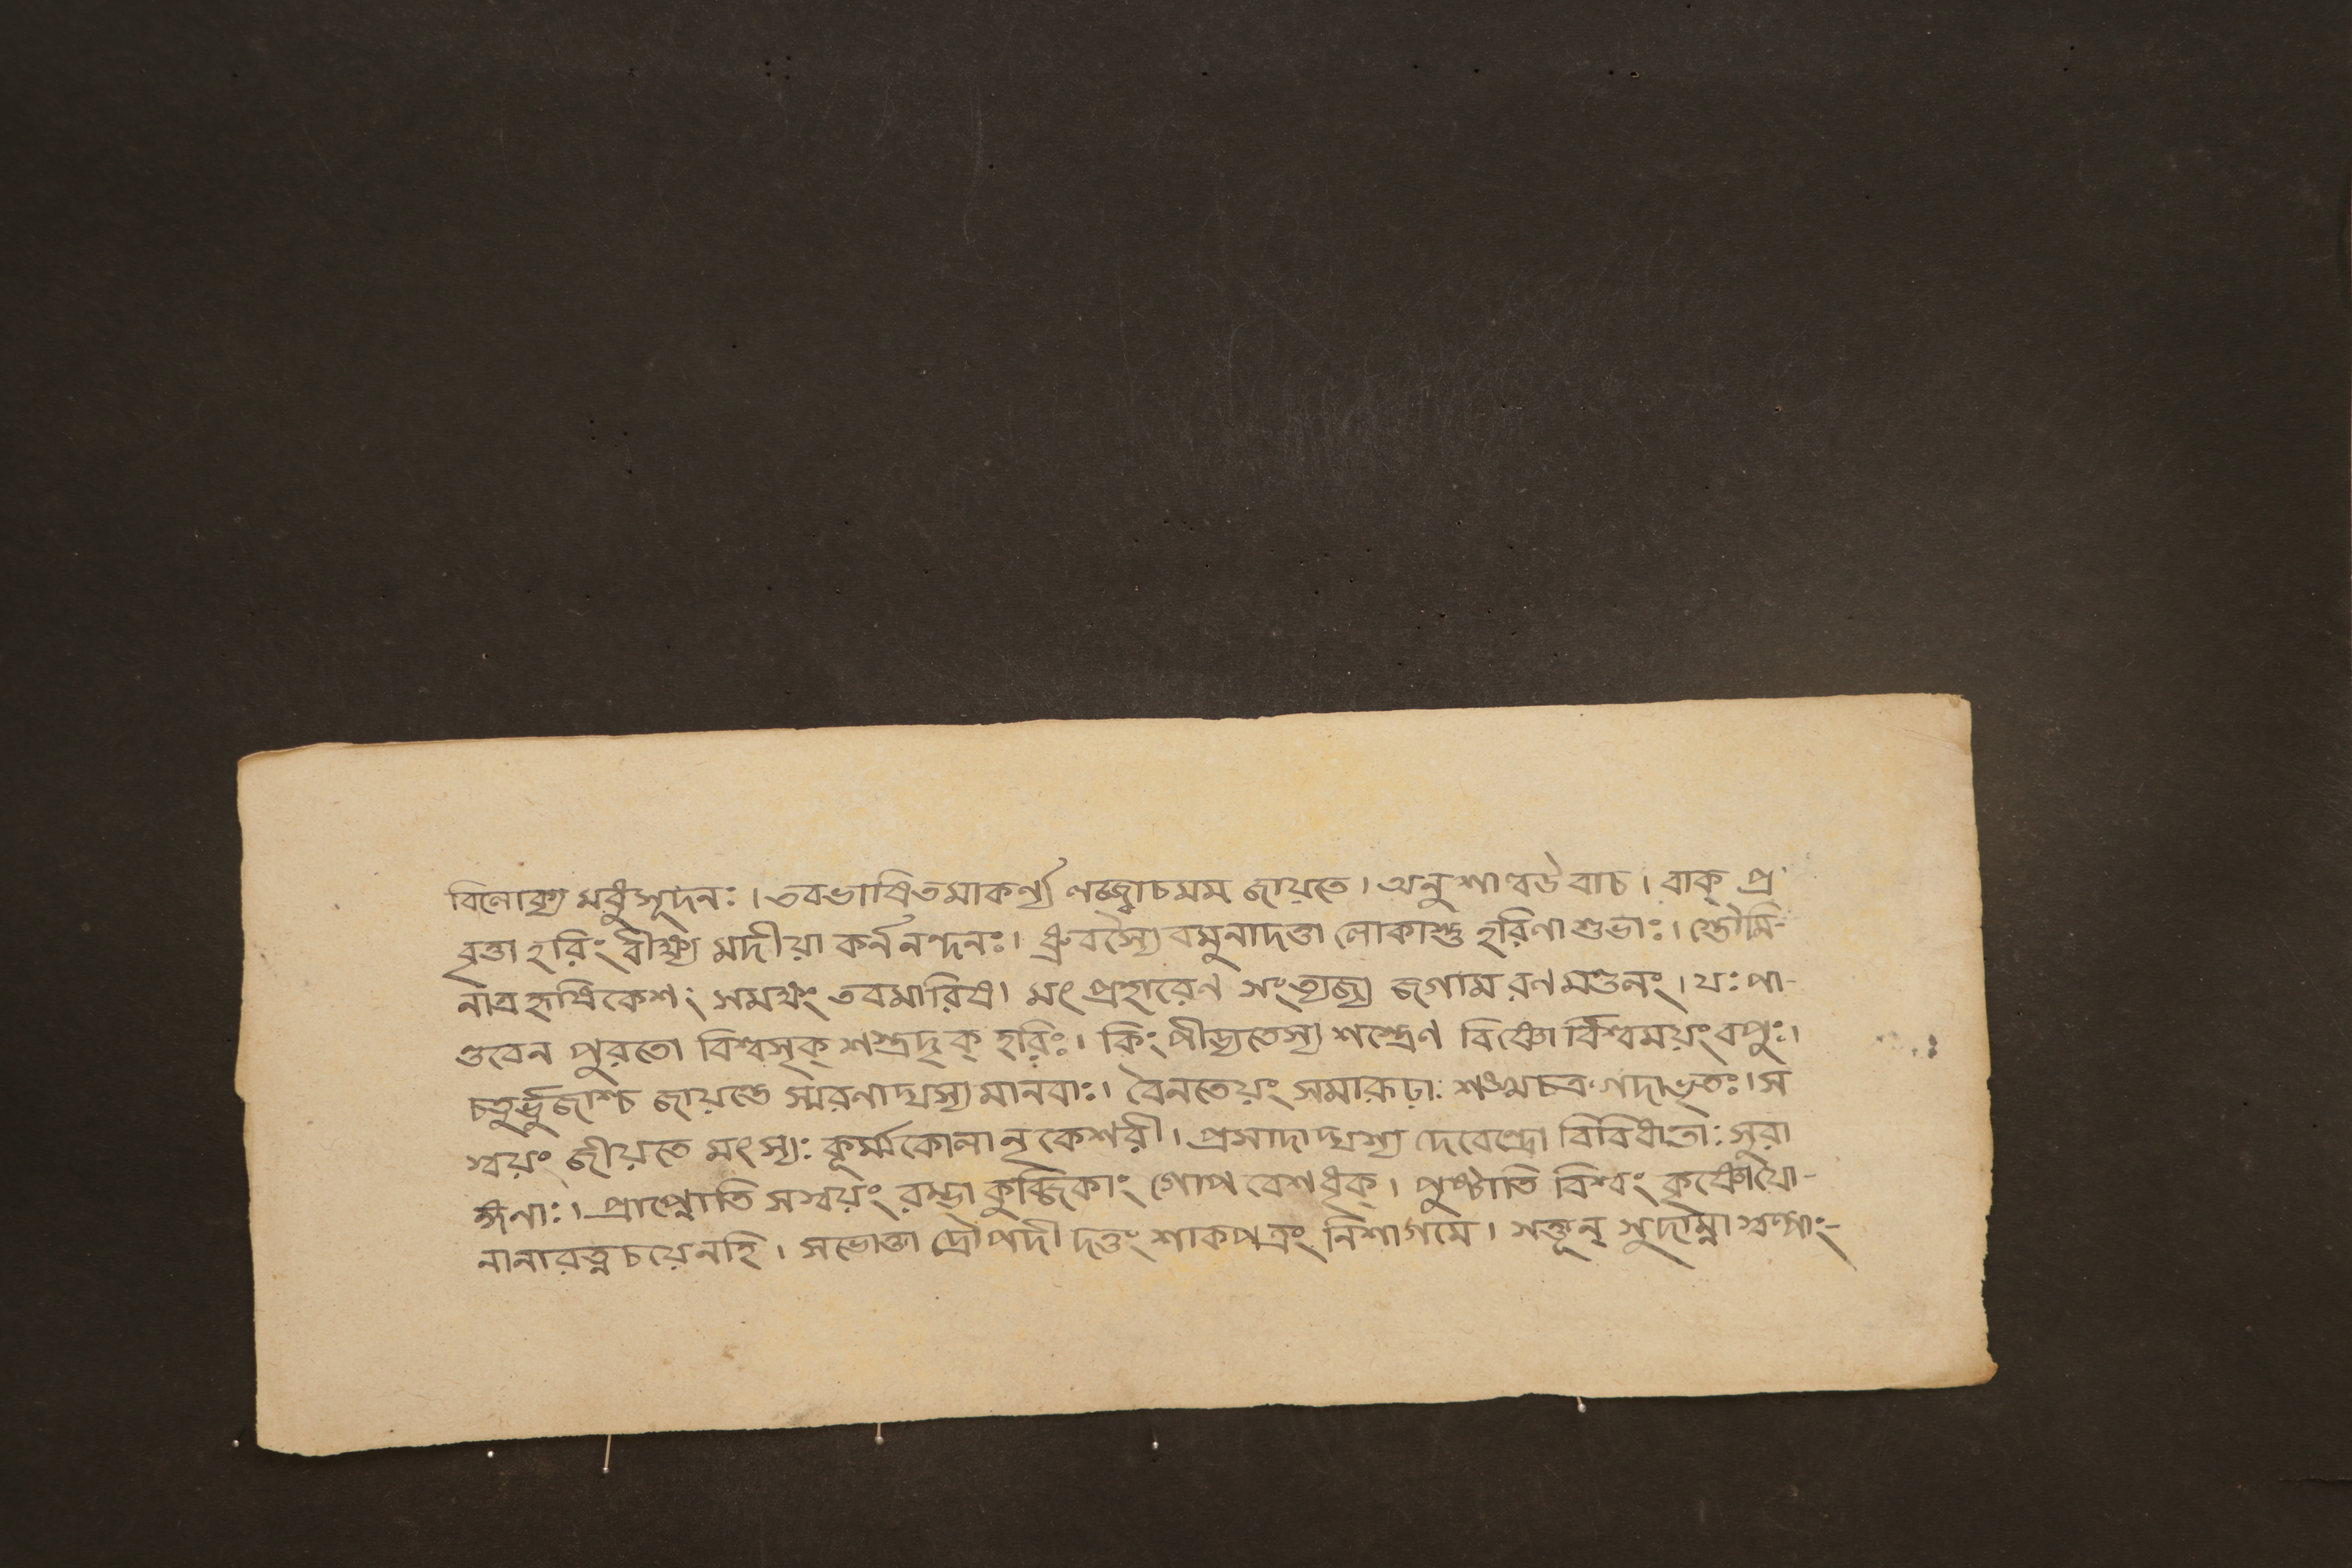 বিলোক্য মধুসূদনঃ । তবভাষিতমাকর্ণ্য লজ্জাচমম জায়তে । অনুশাল্বউবাচ । বাক্ প্র
বৃত্তা হরিং বীক্ষ্য মদীয়া কর্ননন্দনঃ । ধ্রুবস্যৈবমুনাদত্তা লোকাশ্চ হরিণা শুভাঃ । স্তৌমি-
নাত্রহৃষিকেশং সমক্ষং তবমারিষ । মৎ প্রহারেণ সংত্যজ্য জগাম রণমণ্ডলং । যঃ পা-
ণ্ডবেন পুরতো বিশ্বসৃক্ শস্ত্রদৃক্ হরিঃ । কিং পীড্যতেস্য শস্ত্রেণ বিষ্ণো র্বিশ্বময়ং বপুঃ ।
চতুর্ভুজাশ্চ জায়ন্তে স্মরণাদ্যস্য মানবাঃ । বৈনতেয়ং সমারূঢ়াঃ শঙ্খচক্রগদাভৃতঃ । স
স্বয়ং জীয়তে মৎস্যঃ কূর্ম্মকোলানৃকেশরী । প্রসাদাদ্যস্য দেবেন্দ্রো বিবিধাতাঃ সুরা
ঙ্গনাঃ । প্রাপ্নোতি সস্বয়ং রম্ভা কুব্জিকাং গোপবেশধৃক্ । পুষ্ণাতি বিশ্বং কৃষ্ণোযো-
নানারত্নচয়েনহি । সভোক্তা দ্রৌপদী দত্তং শাকপত্রং নিশাগমে । সক্তূন্ সুদাম্না